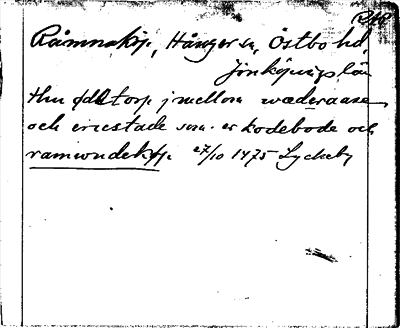 RAP
Råmnaköp, Hånger sn, Östbo hd,
Jönköpings län
thu ødhtorp j mellom wæderaase
och ericstade som er kodebode och
ramundeköp. 27/10 1475 Lyckeby